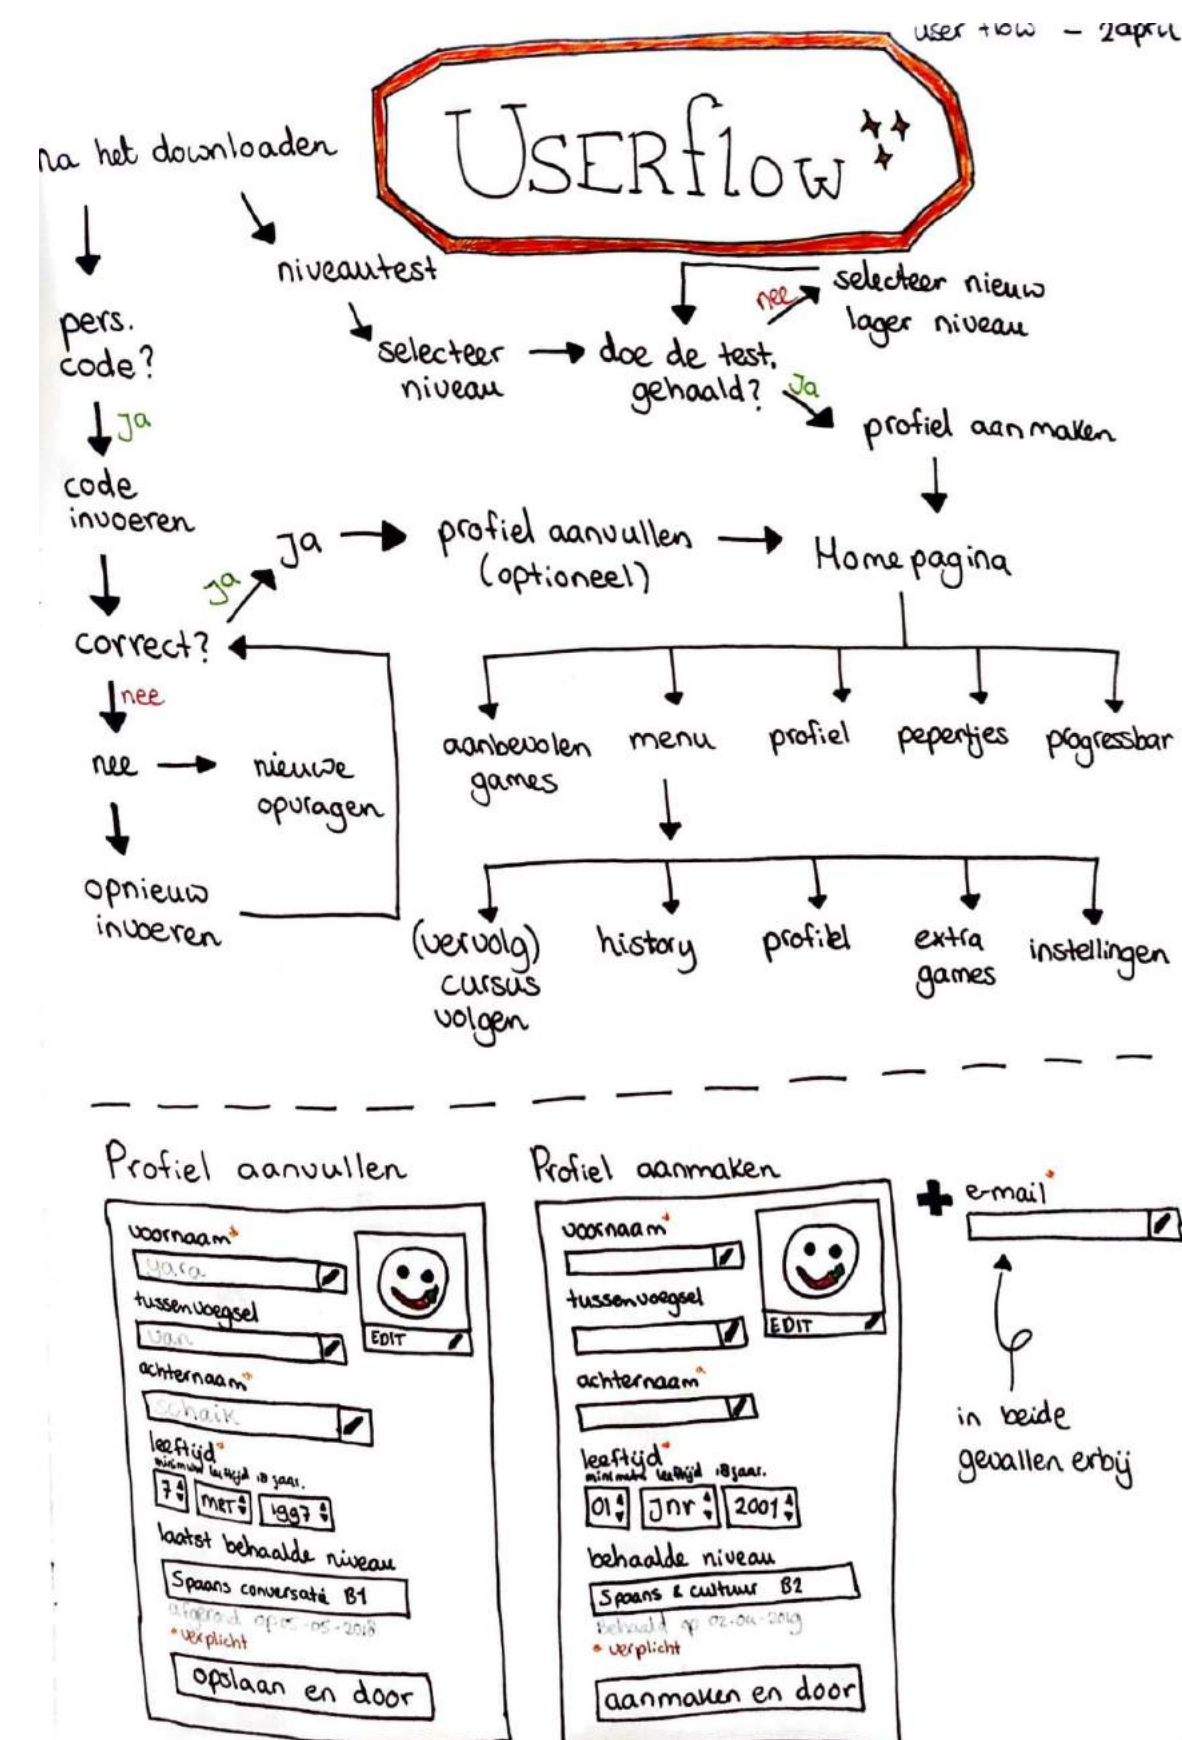 user flow - 2april
USERflow
na het downloaden
niveautest
pers.
code?
Ja
code
invoeren
correct?
Ja
Ja
nee
nee
nieuwe
opvragen
opnieuw
invoeren
selecteer
niveau
doe de test.
gehaald?
nee
selecteer nieuw
lager niveau
Ja
profiel aanmaken
profiel aanvullen
(optioneel)
Homepagina
aanbevolen
games
menu
profiel
pepertjes
progressbar
(vervolg)
cursus
volgen
history
profiel
extra
games
instellingen
Profiel aanvullen
voornaam*
yara
tussenvoegsel
van
achternaam*
schaik
EDIT
leeftijd*
minimum leeftijd 18 jaar.
7 mrt 1997
laatst behaalde niveau
Spaans conversatie B1
afgerond op 05-05-2018
*verplicht
opslaan en door
Profiel aanmaken
voornaam*
tussenvoegsel
achternaam*
EDIT
leeftijd*
minimum leeftijd 18 jaar.
01 Jnr 2001
behaalde niveau
Spaans & cultuur B2
Behaald op 02-04-2019
* verplicht
aanmaken en door
+ e-mail*
in beide
gevallen erbij